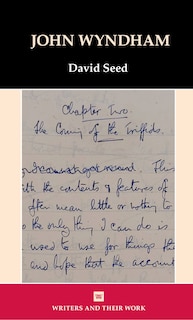 JOHN WYNDHAM
David Seed
Chapter Two
The Coming of the Triffids.
record. This
with the contents & features of
often mean little or nothing to
the only thing I can do is
used to use for things th
and hope that the account
WRITERS AND THEIR WORK